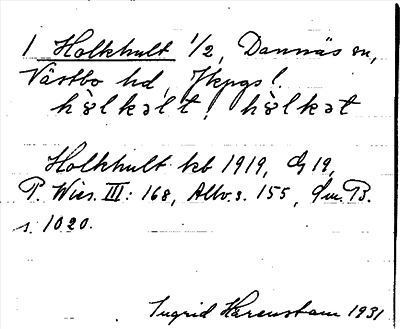 1 Holkhult 1/2, Dannäs sn,
Västbo hd, Jkpgs l.
hòlkəlt, hòlkət
Holkhult kb 1919, G 19,
P. Wies. III: 168, Allv. s. 155,
s. 1020.
Ingrid Härenstam 1931